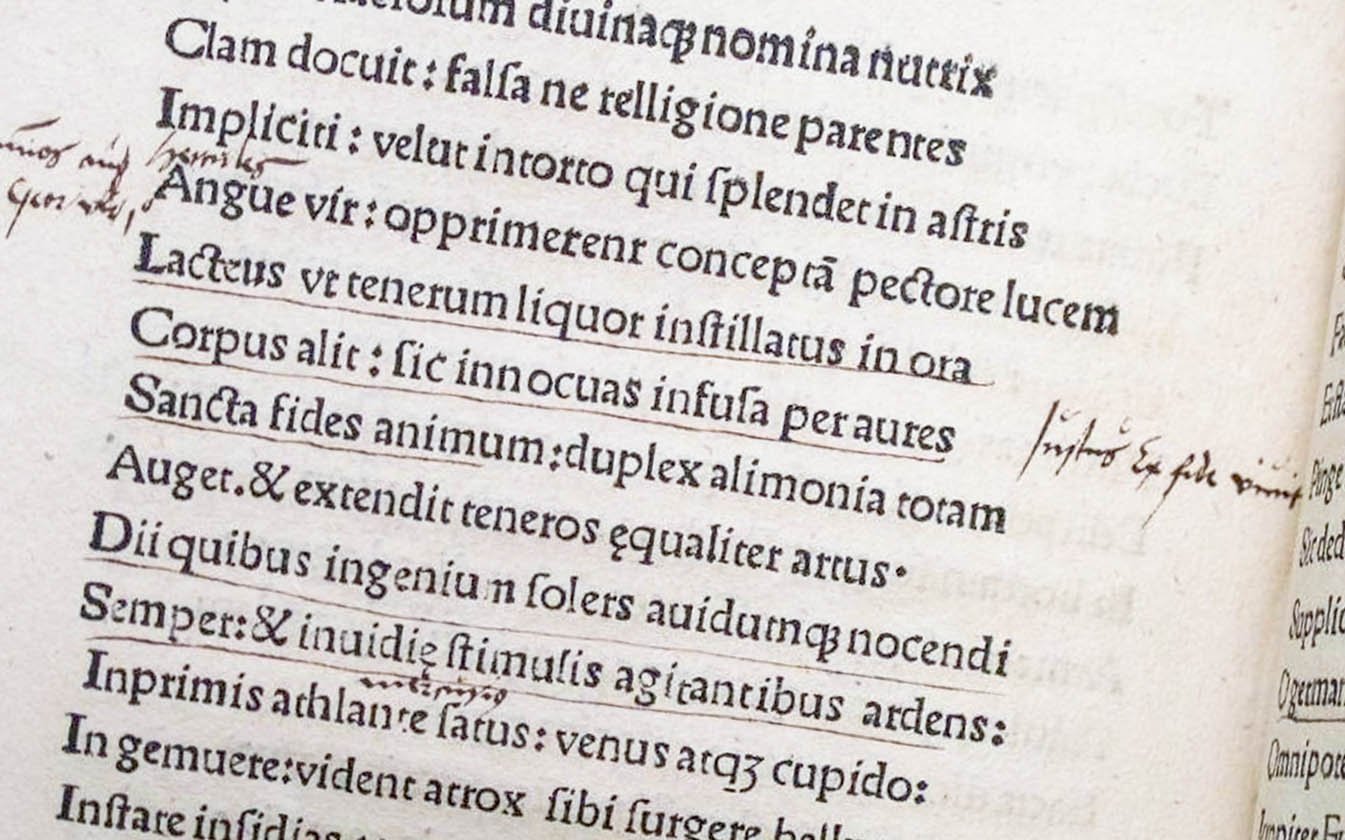 diuinaqꝫ nomina nutrix
Clam docuit: falſa ne relligione parentes
Impliciti: velut intorto qui ſplendet in aſtris
Angue vir: opprimerent conceptā pectore lucem
Lacteus vt tenerum liquor inſtillatus in ora
Corpus alit: ſic innocuas infuſa per aures
Sancta fides animum: duplex alimonia totam
Iustus Ex fide viuit
Auget. & extendit teneros ęqualiter artus.
Dii quibus ingenium ſolers auidumqꝫ nocendi
Semper: & inuidię ſtimulis agitantibus ardens:
Inprimis athlante ſatus: venus atqꝫ cupido:
In gemuere: vident atrox ſibi ſurgere
Inſtare inſidias
Pinge
Sic ded
Supplic
O german
Omnipote